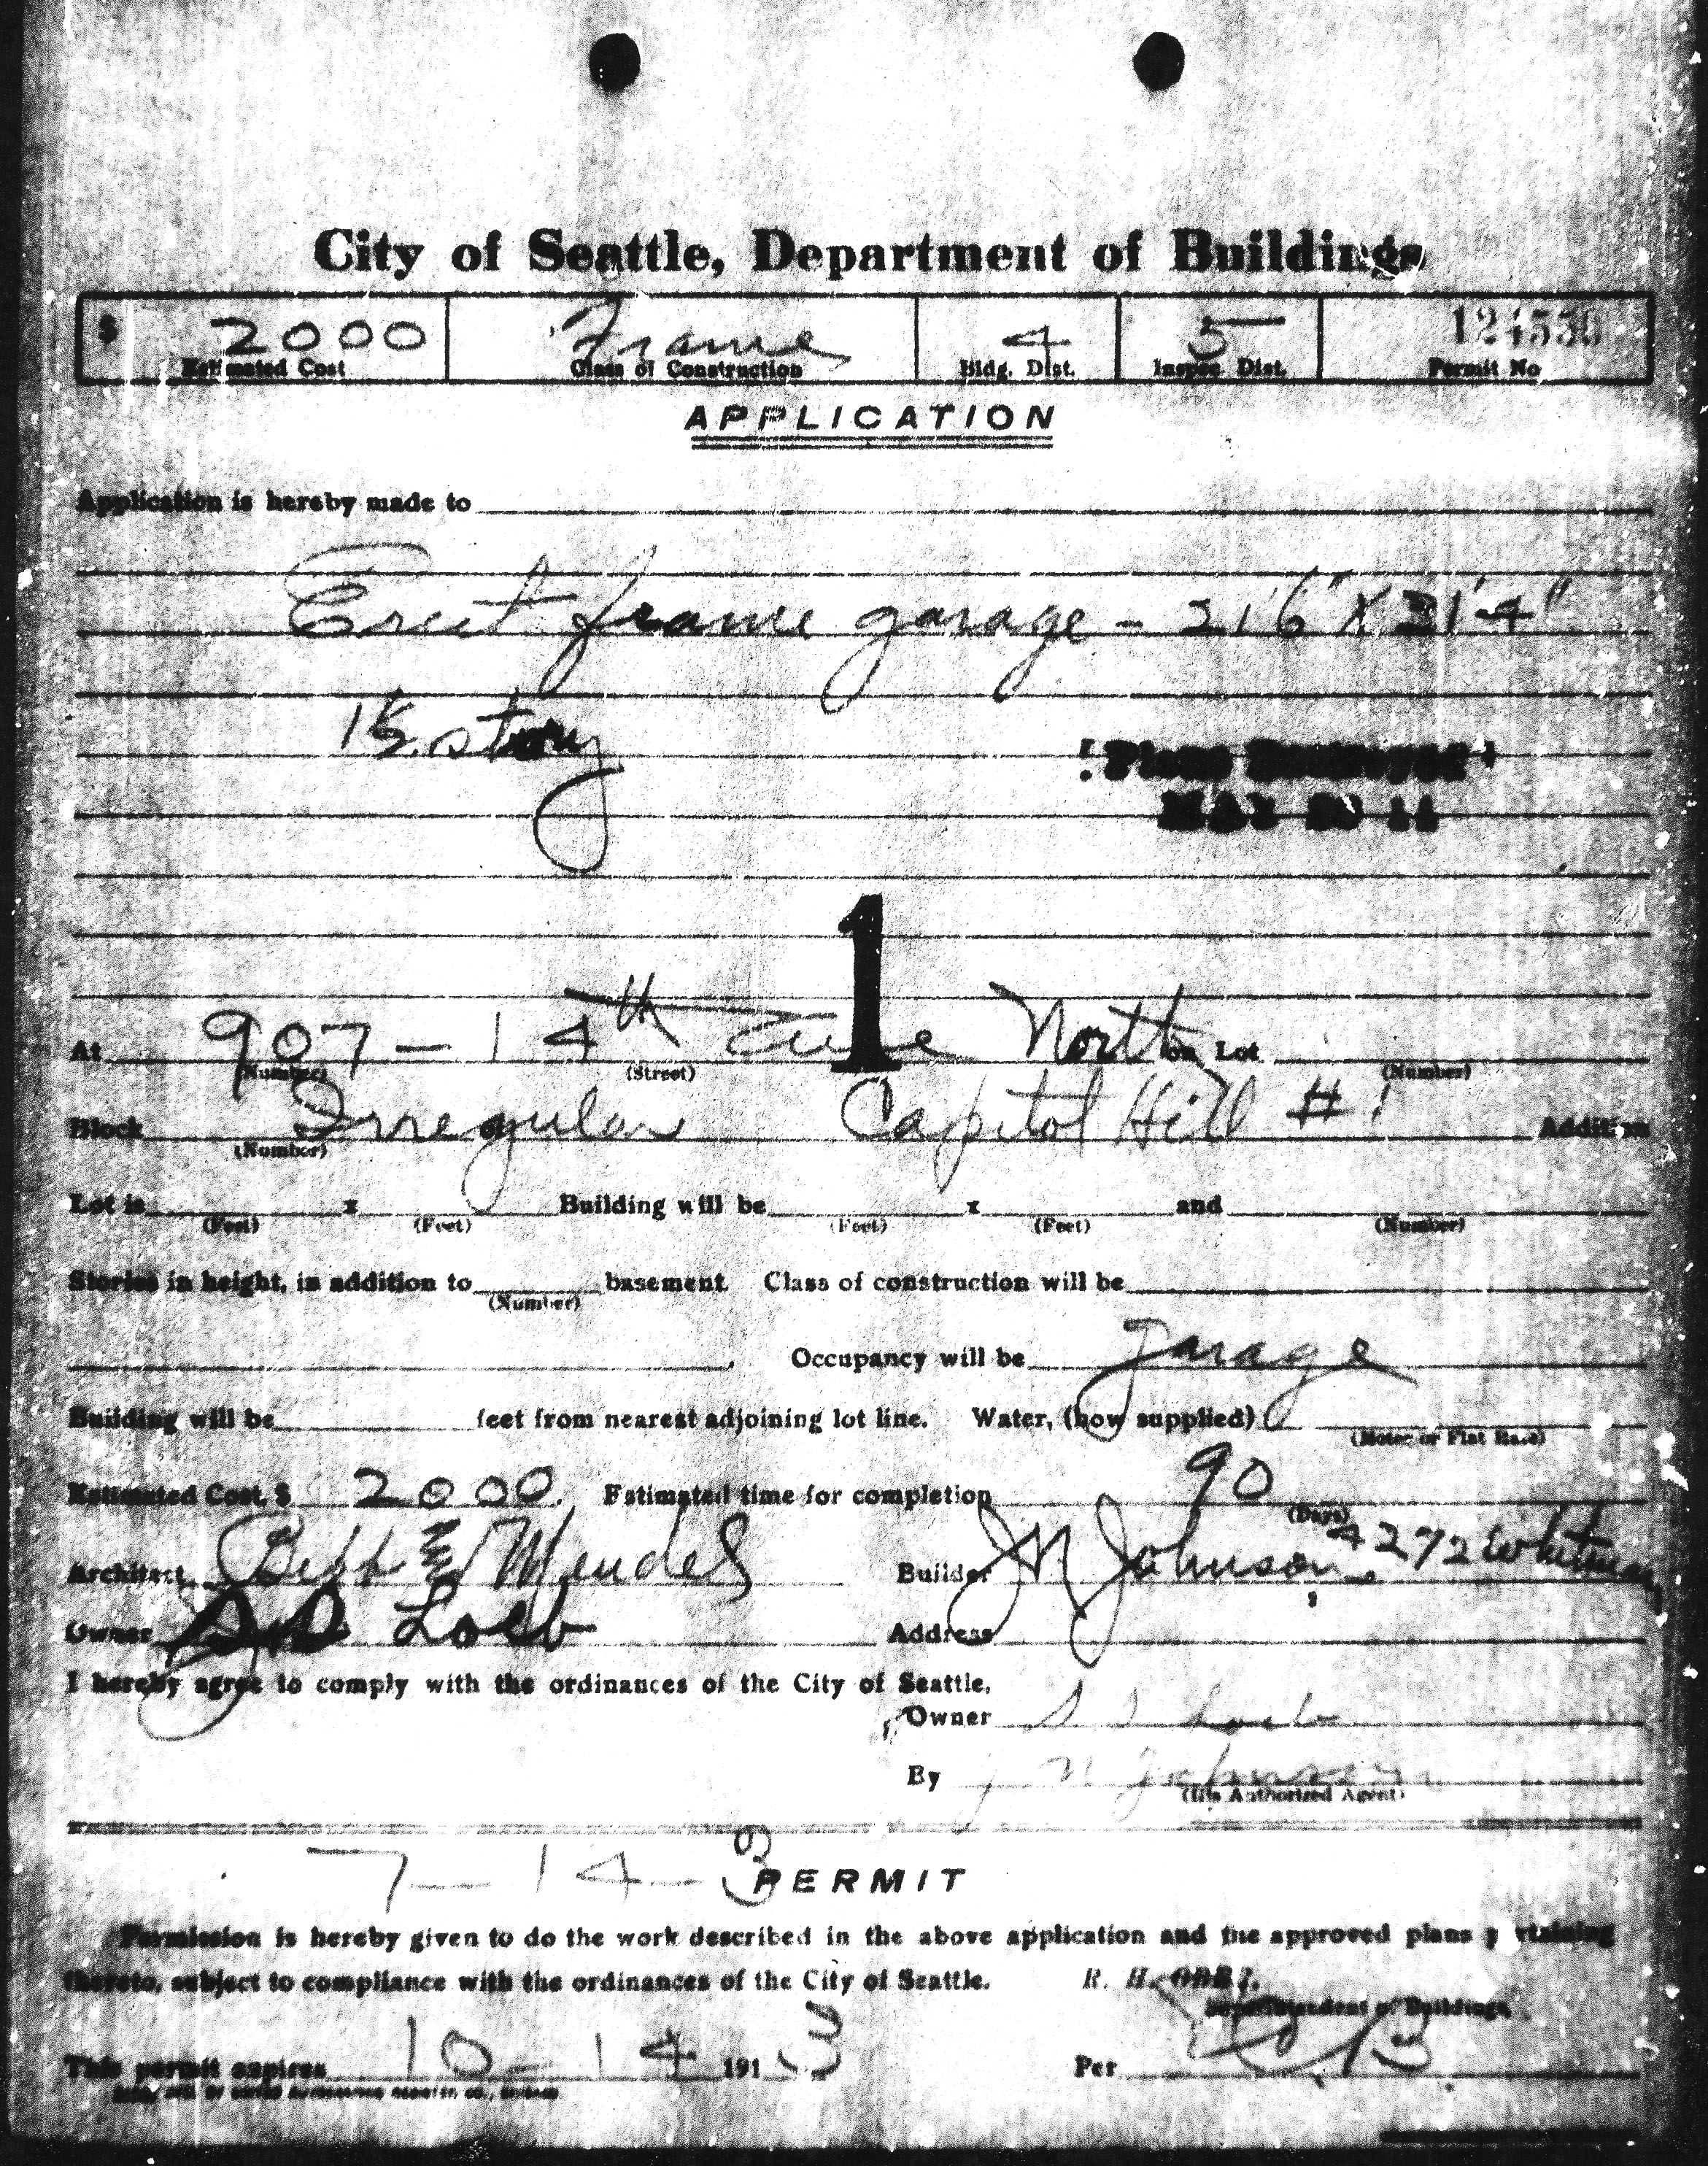 City of Seattle, Department of Buildings
$ 2000 Frame 4 5
Estimated Cost Class of Construction Bldg. Dist. Inspec. Dist. Permit No
APPLICATION
Application is hereby made to
Erect frame garage - 21'6" X 31'4"
1½ story
1
At 907 - 14th Ave North on Lot
(Number) (Street) (Number)
Block Irregular Capitol Hill # 1 Addition
(Number)
Lot is x Building will be x and
(Feet) (Feet) (Feet) (Feet) (Number)
Stories in height, in addition to basement Class of construction will be
(Number)
Occupancy will be Garage
Building will be feet from nearest adjoining lot line. Water, (how supplied)
(Meter or Flat Rate)
Estimated Cost, $ 2000. Estimated time for completion 90
(Days)
Architect Bebb & Mendel Builder J N Johnson. 4272 Whitman
Owner Loeb Address
I hereby agree to comply with the ordinances of the City of Seattle,
Owner Loeb
By J N Johnson
(His Authorized Agent)
7-14-3
PERMIT
Permission is hereby given to do the work described in the above application and the approved plans pertaining
thereto, subject to compliance with the ordinances of the City of Seattle. R. H.
Superintendent of Buildings,
This permit expires 10-14 1913 Per